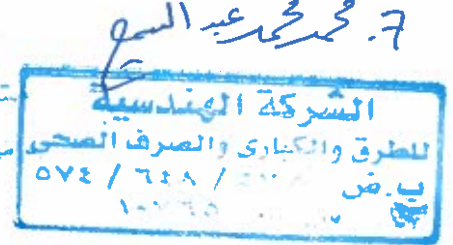 م. محمد محمد عبد السميع
الشركة الهندسية
للطرق والكبارى والصرف الصحى
ب. ض / ٦٤٨ / ٥٧٤